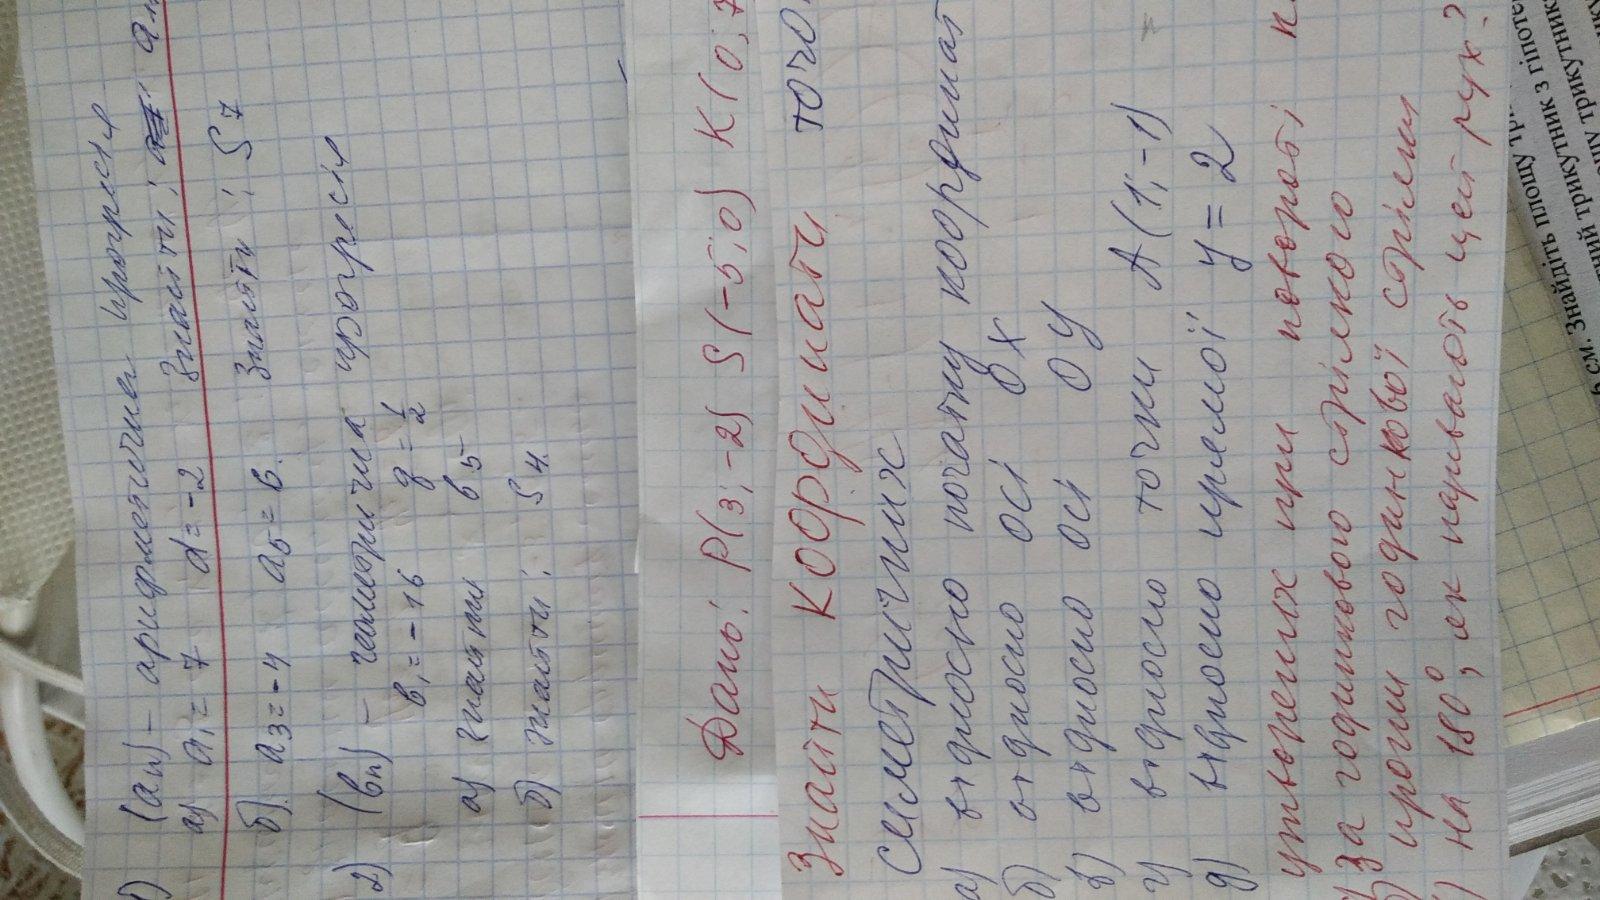 1) (an) - арифметична прогресія
а) a₁ = 7 d = -2 Знайти:
б) a₃ = -4 a₅ = 6. Знайти: S₇
2) (bn) - геометрична прогресія
b₁ = -16 q = 1/2
а) знайти b₅
б) знайти: S₄.
Дано: P(3;-2) S(-5;0) K(0;7
Знайти координати
симетричних
а) відносно початку координат
б) відносно осі Ox
в) відносно осі Oy
г) відносно точки A(1;-1)
д) відносно прямої y = 2
утворених при повороті
за годинникового стрілкого
проти годинкової стрілки
на 180°, як називають цей рух?
6 см. Знайдіть площу
трикутник з гіпоте
площу трикутник